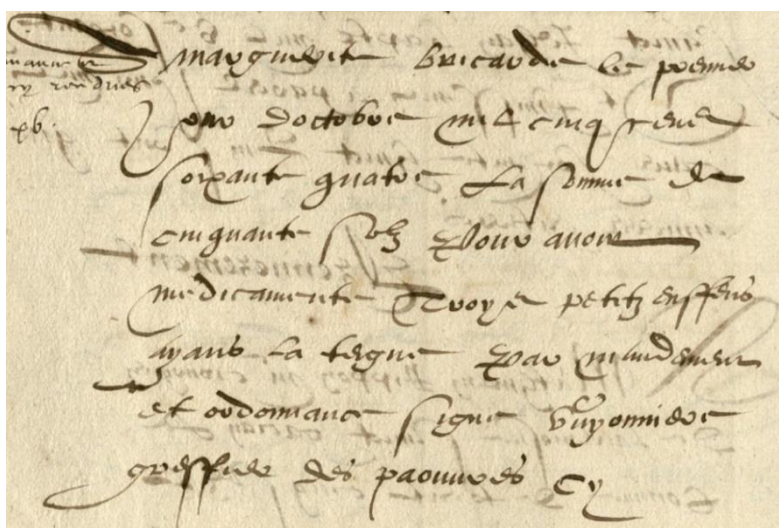 marguerite bricarde le premier
jour doctobre mil cinq cens
soixante quatre la somme de
cinquante solz pour avoir
medicamente troys petitz enffens
ayans la teigne par mandement
et ordonnance signe
greffier des paouvres cy